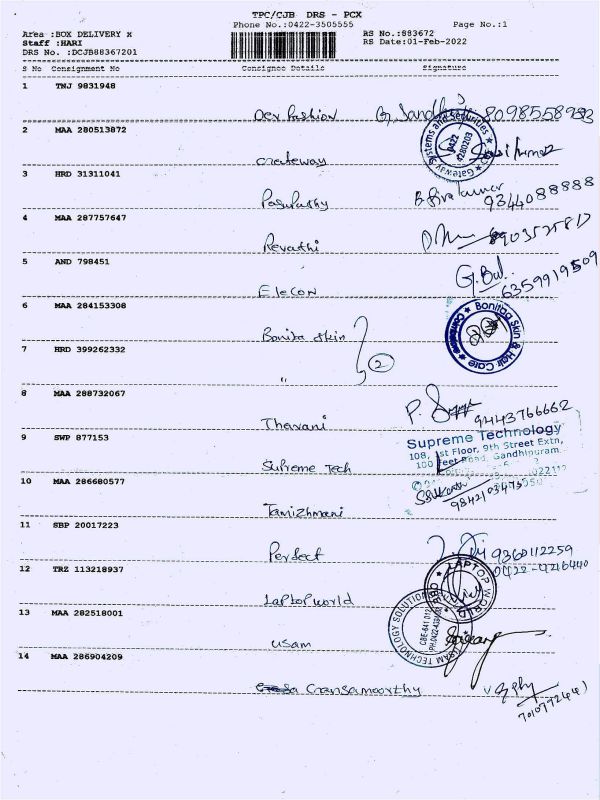 TPC/CJB DRS - PCX
Phone No.:0422-3505555 Page No.:1
Area :BOX DELIVERY x RS No.:883672
Staff :HARI RS Date:01-Feb-2022
DRS No. :DCJB88367201
S No Consignment No Consignee Details Signature
1 TNJ 9831948
Dev Fashion
2 MAA 280513872
Gateway
Gateway Systems and Securities
0422
4280203
3 HRD 31311041
Pasupathy 9344088888
4 MAA 287757647
Revathi
5 AND 798451
Elecon 6359919509
6 MAA 284153308
Bonita Skin
Bonitaa Skin & Hair Care
Coimbatore
7 HRD 399262332
" 2
8 MAA 288732067
Thavani 9443766662
9 SWP 877153
Supreme Technology
108, 1st Floor, 9th Street Extn,
100 Feet Road, Gandhipuram
Supreme Tech
10 MAA 286680577
Tamizhmani
11 SBP 20017223
Perfect 9360112259
12 TRZ 113218937
Laptop world
LAPTOP WORLD
13 MAA 282518001
usam
USAM TECHNOLOGY SOLUTION
CBE-641 012
14 MAA 286904209